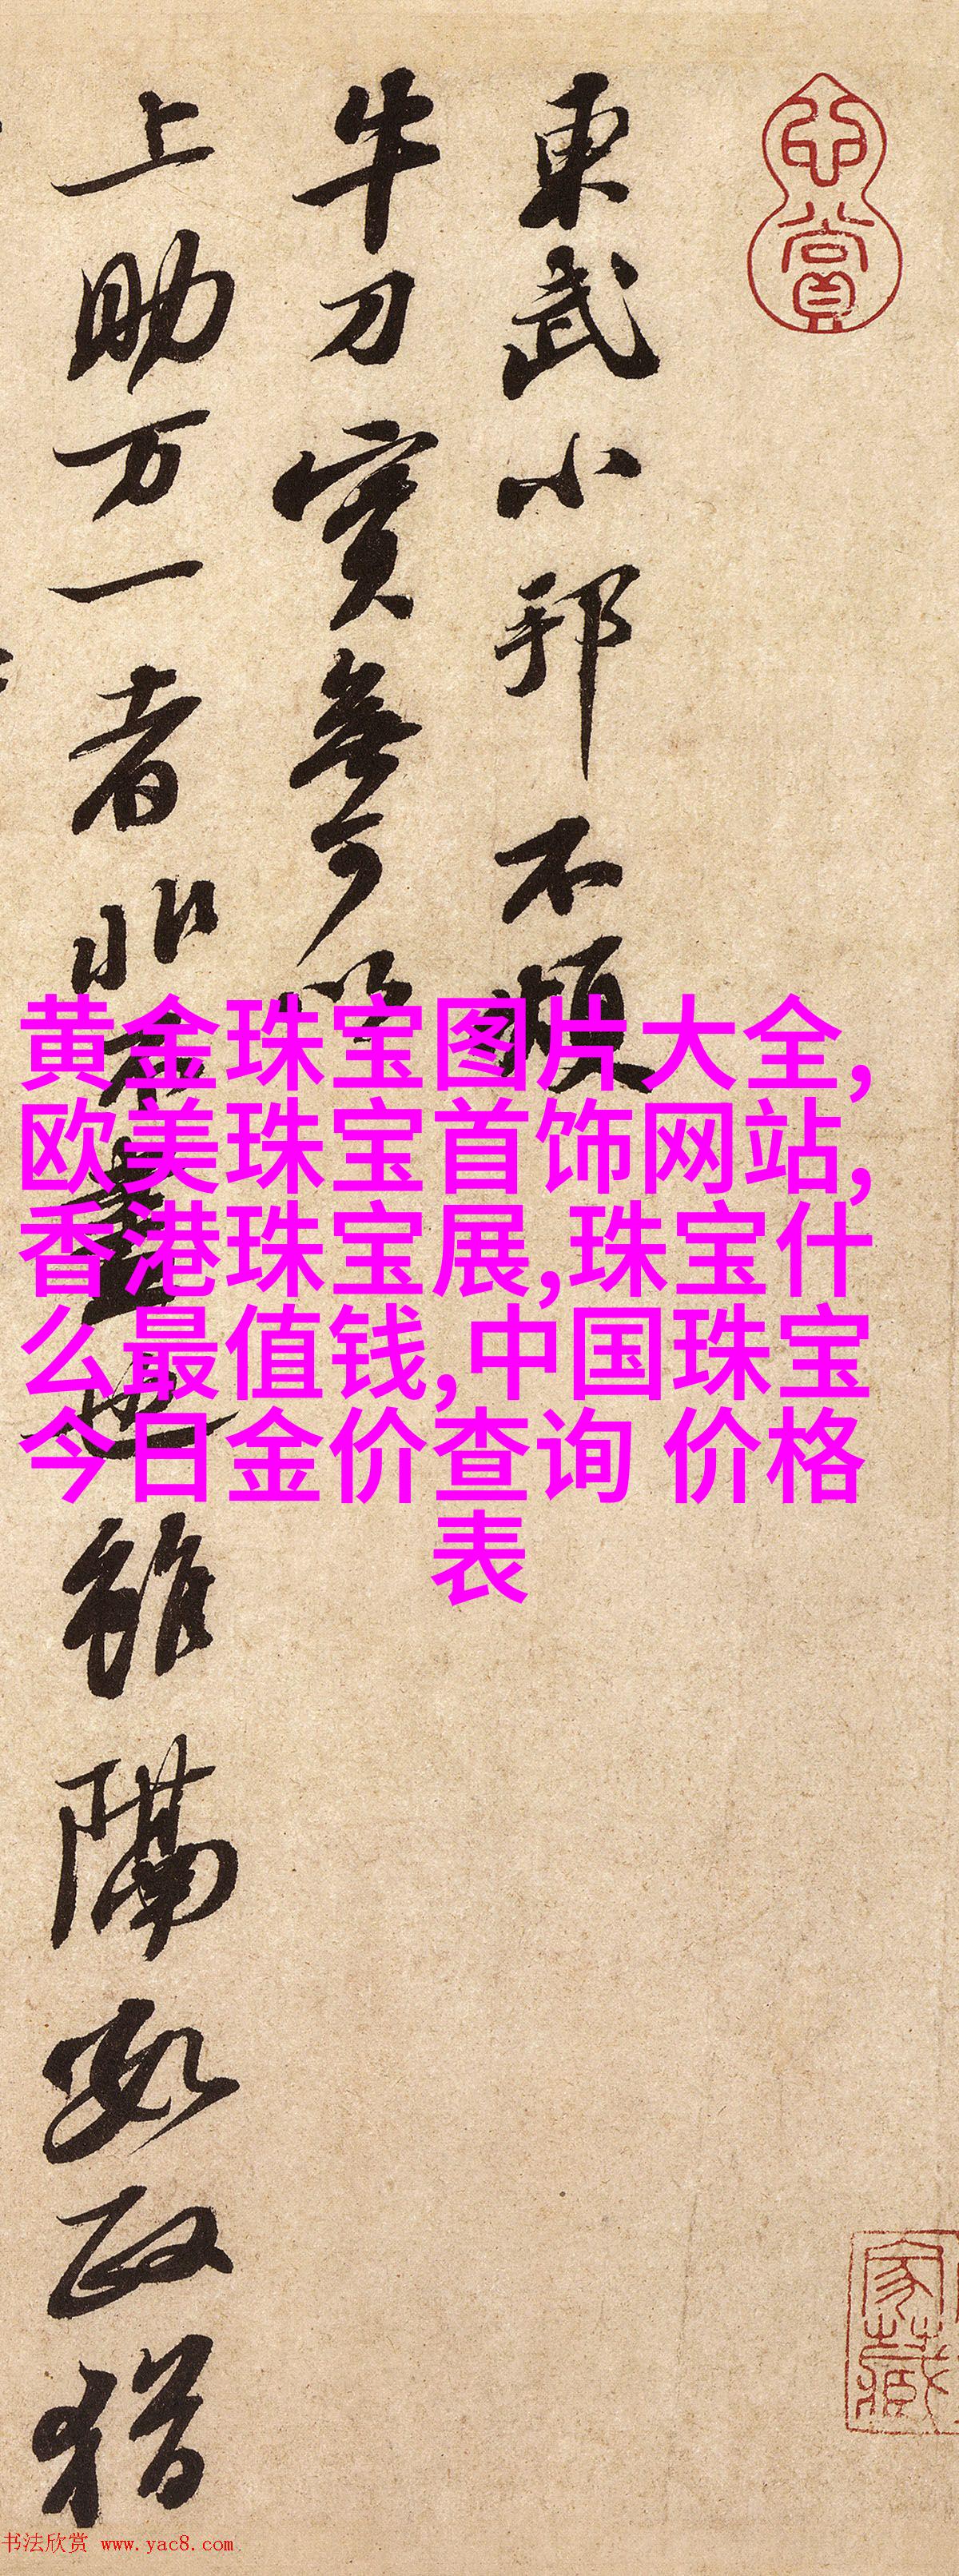 東武小邦不煩
牛刀實無可以
上助万一者非不盡也雖隔數政猶
黄金珠宝图片大全,
欧美珠宝首饰网站,
香港珠宝展,珠宝什
么最值钱,中国珠宝
今日金价查询 价格
表
家藏
书法欣赏 www.yac8.com